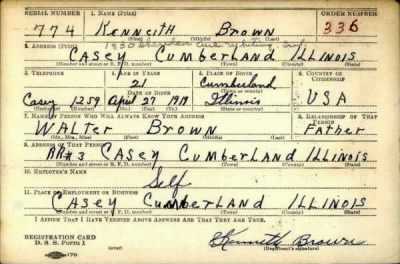 SERIAL NUMBER 1. NAME (Print) ORDER NUMBER
774 KENNEITH BROWN 336
(First) (Middle) (Last)
2. ADDRESS (Print)
CASEY CUMBERLAND ILLINOIS
(Number and street or R. F. D. number) (Town) (County) (State)
3. TELEPHONE 4. AGE IN YEARS 5. PLACE OF BIRTH 6. COUNTRY OF CITIZENSHIP
21 Cumberland
DATE OF BIRTH (Town or county)
Casey 1259 April 27 1919 Illinois USA
(Exchange) (Number) (Mo.) (Day) (Yr.) (State or country)
7. NAME OF PERSON WHO WILL ALWAYS KNOW YOUR ADDRESS 8. RELATIONSHIP OF THAT PERSON
WALTER BROWN Father
(Mr., Mrs., Miss) (First) (Middle) (Last)
9. ADDRESS OF THAT PERSON
RR#3 CASEY CUMBERLAND ILLINOIS
(Number and street or R. F. D. number) (Town) (County) (State)
10. EMPLOYER'S NAME
Self
11. PLACE OF EMPLOYMENT OR BUSINESS
CASEY CUMBERLAND ILLINOIS
(Number and street or R. F. D. number) (Town) (County) (State)
I AFFIRM THAT I HAVE VERIFIED ABOVE ANSWERS AND THAT THEY ARE TRUE.
REGISTRATION CARD
D. S. S. Form 1 (over) Kenneith Brown
(Registrant's signature)